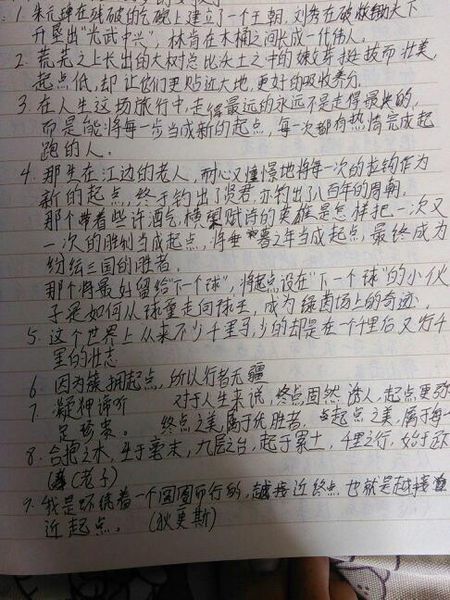 1. 朱元璋在残破的乞碗上建立了一个王朝,刘秀在破败的天下
升垦出"光武中兴",林肯在木桶之间长成一代伟人。
2. 荒芜之上长出的大树总比沃土之中的嫩芽挺拔而壮美,
起点低,却让他们更贴近大地,更好的吸收养分。
3. 在人生这场旅行中,走得最远的永远不是走得最快的,
而是能将每一步当成新的起点,每一次都有热情完成起
跑的人。
4. 那坐在江边的老人,耐心又憧憬地将每一次的拉钩作为
新的起点,终于钓出了贤君,亦钓出了八百年的周朝。
那个带着些许酒气,横槊赋诗的英雄是怎样把一次又
一次的胜利当成起点,将垂暮之年当成起点,最终成为
纷纭三国的胜者。
那个将最好留给"下一个球",将起点设在"下一个球"的小伙
子是如何从球童走向球王,成为绿茵场上的奇迹。
5. 这个世界上从来不少千里马,少的却是在一个千里后又行千
里的壮志
6. 因为簇拥起点,所以行者无疆
7. 凝神谛听 对于人生来说,终点固然诱人,起点更弥
足珍贵。 终点之美,属于优胜者,起点之美,属于每一
8. 合抱之木,生于毫末,九层之台,起于累土,千里之行,始于足
(老子)
9. 我是环绕着一个圆圈而行的,越接近终点也就是越接
近起点。 (狄更斯)